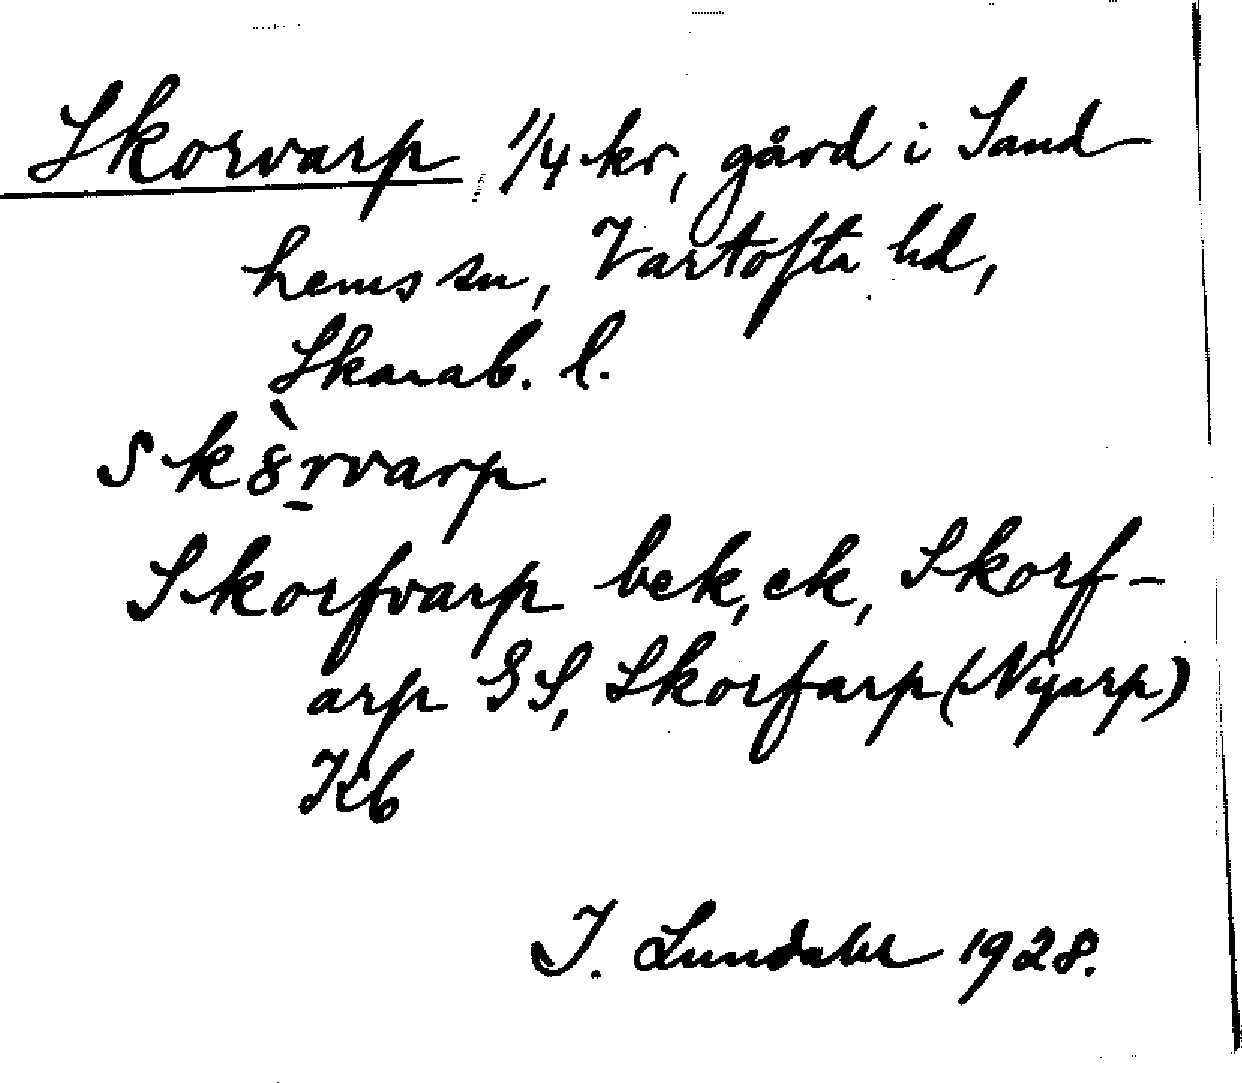 Skorvarp 1/4 kr, gård i Sand
hems sn, Vartofta hd,
Skarab. l.
sk8̀r̠varp
Skorfvarp bek, ek, Skorf-
arp GS, Skorfarp (Nyarp)
Kb
I. Lundahl 1928.